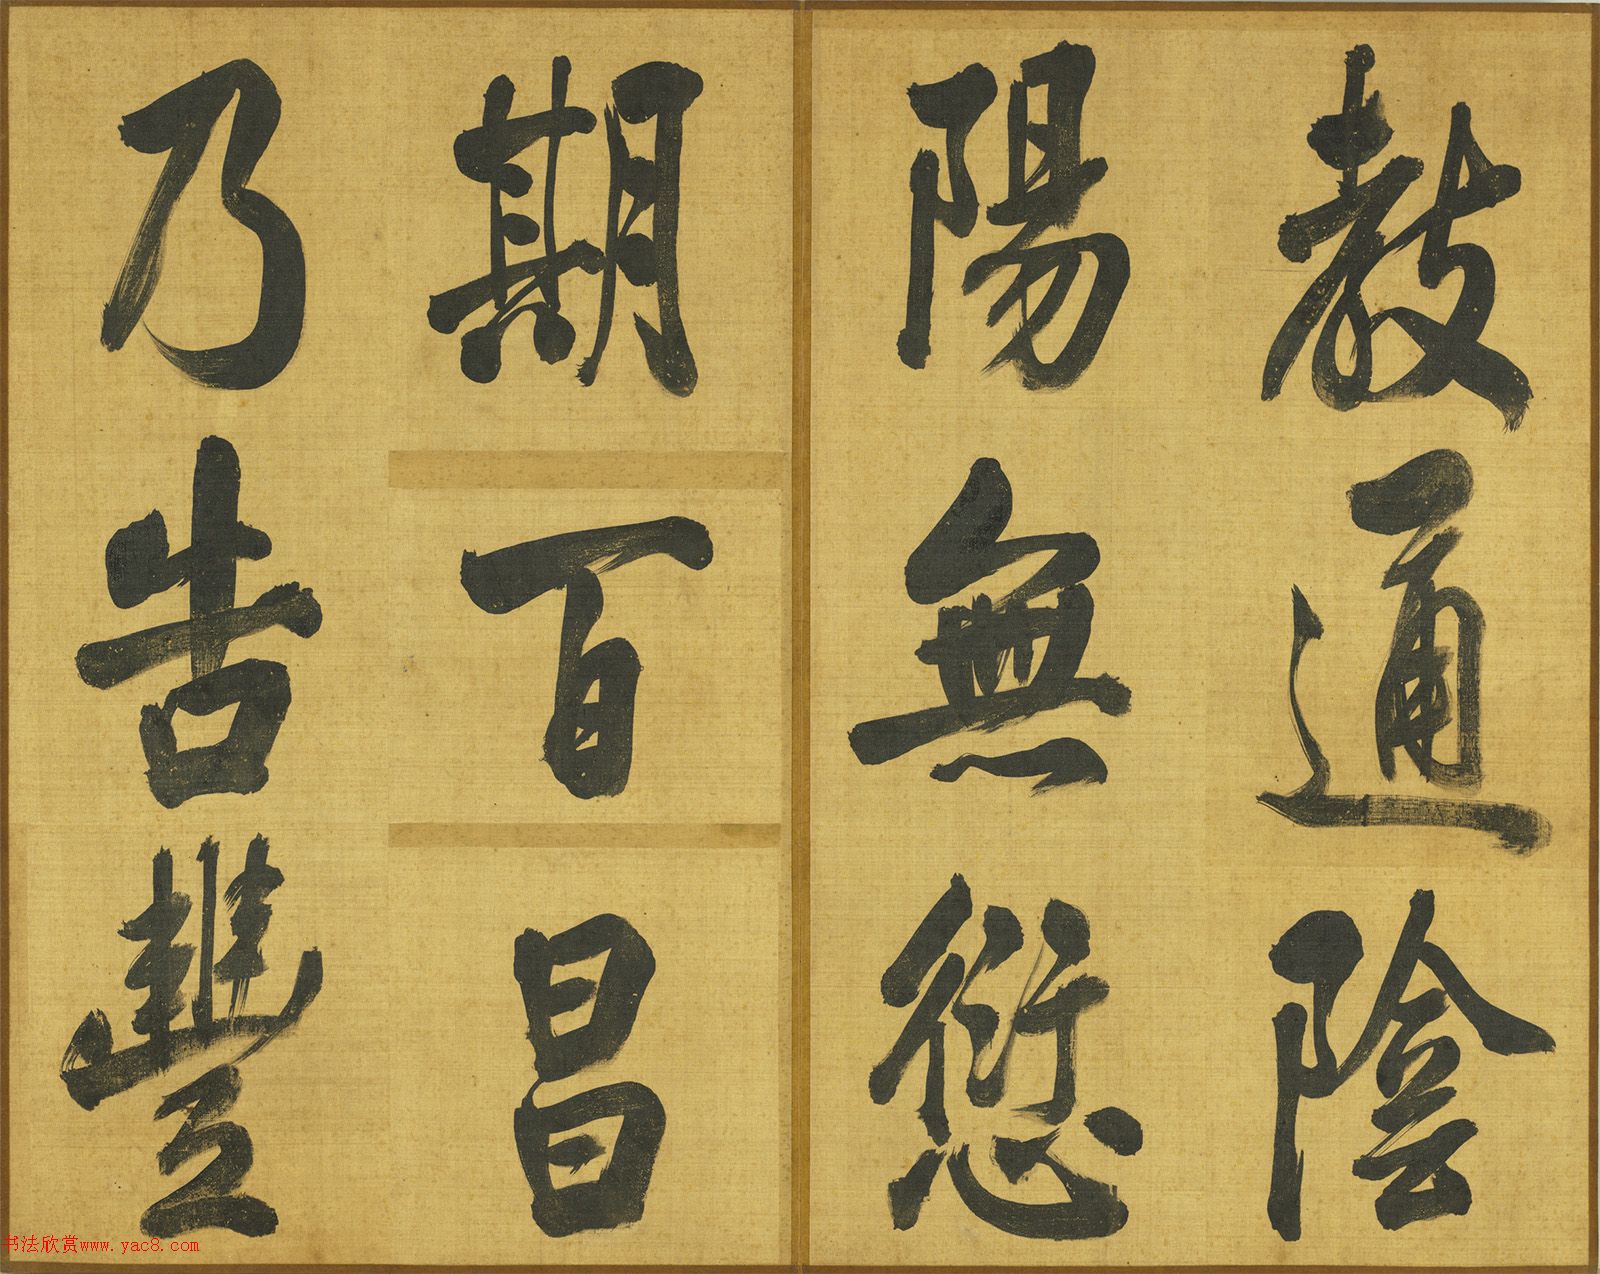 教通陰
陽無愆
期百昌
乃告豐
书法欣赏www.yac8.com